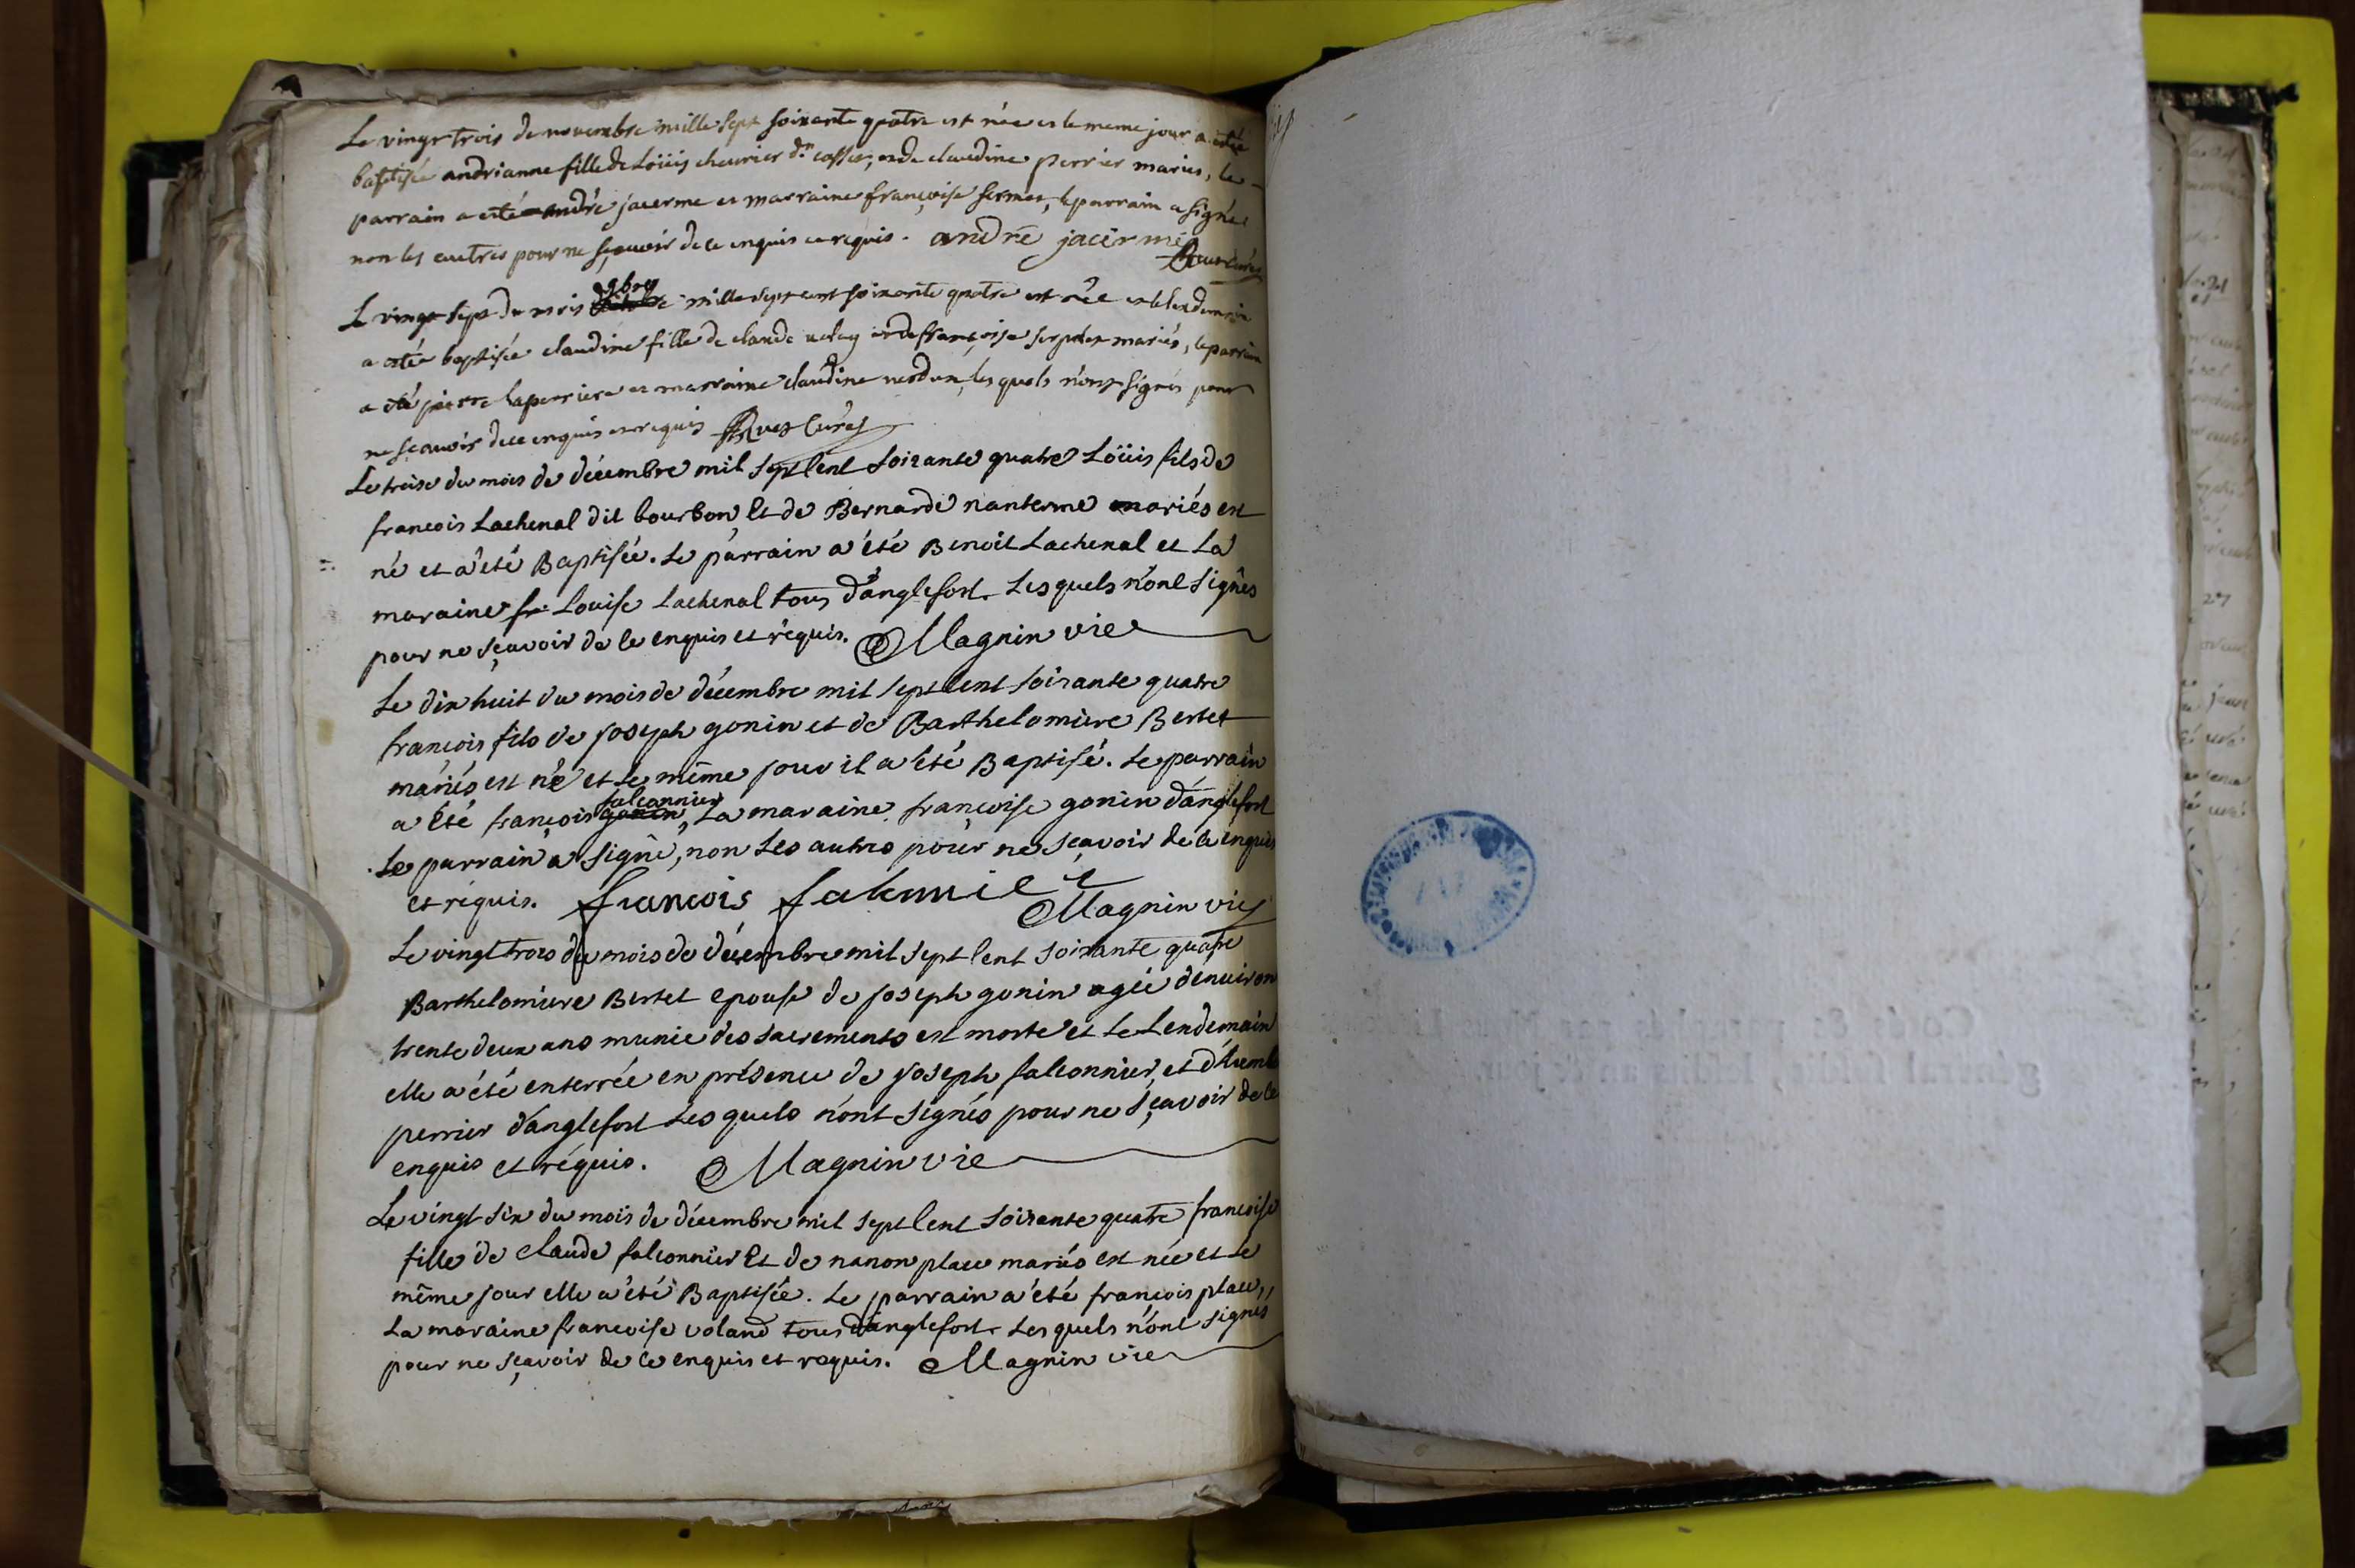 Le vingt trois de novembre mille sept soixante quatre est née et le meme jour a estée
baptisée andrianne fille de Loüis chevrier dn cosser, et de claudine perrier mariés, le
parrain a esté andré jacerme et marraine françoise fermet, le parrain a signé et
non les autres pour ne sçavoir de ce enquis et requis. andré jacerme
curé
Le vingt sept du mois 9bre mille sept cent soixante quatre est née et le lendemain
a estée baptisée claudine fille de claude et de françoise mariés, le parrain
a été pierre laperriere et marraine claudine verdun, les quels n'ont signés pour
ne scavoir de ce enquis et requis curé
Le treise du mois de décembre mil sept cent soixante quatre Loüis fils de
francois Lachenal dit bourbon Et de Bernarde nanterme mariés est
né et a été Baptisée. Le parrain a été Benoit Lachenal et La
maraine Louise Lachenal tous d'anglefort. Lesquels n'ont signés
pour ne sçavoir de ce enquis et réquis. Magnin vic
Le dix huit du mois de décembre mil sept cent soixante quatre
françois fils de joseph gonin et de Barthelomiere Bertet
mariés est né et Le même jour il a été Baptisé. Le parrain
a été françois gonin falconnier, La maraine francoise gonin d'anglefort
Le parrain a signé, non Les autres pour ne sçavoir de ce enquis
et réquis. francois falconnier Magnin vic
Le vingt trois du mois de décembre mil sept cent soixante quatre
Barthelomiere Bertet epouse de joseph gonin agée d'environ
trente deux ans munie des sacrements est morte et Le Lendemain
elle a été enterrée en présence de joseph falconnier et
perrier d'anglefort Lesquels n'ont signés pour ne sçavoir de ce
enquis et réquis. Magnin vic
Le vingt six du mois de décembre mil sept cent soixante quatre francoise
fille de Claude falconnier Et de nanon place mariés est née et Le
même jour elle a été Baptisée. Le parrain a été francois place,
La maraine francoise voland tous d'anglefort. Lesquels n'ont signés
pour ne sçavoir de ce enquis et requis. Magnin vic